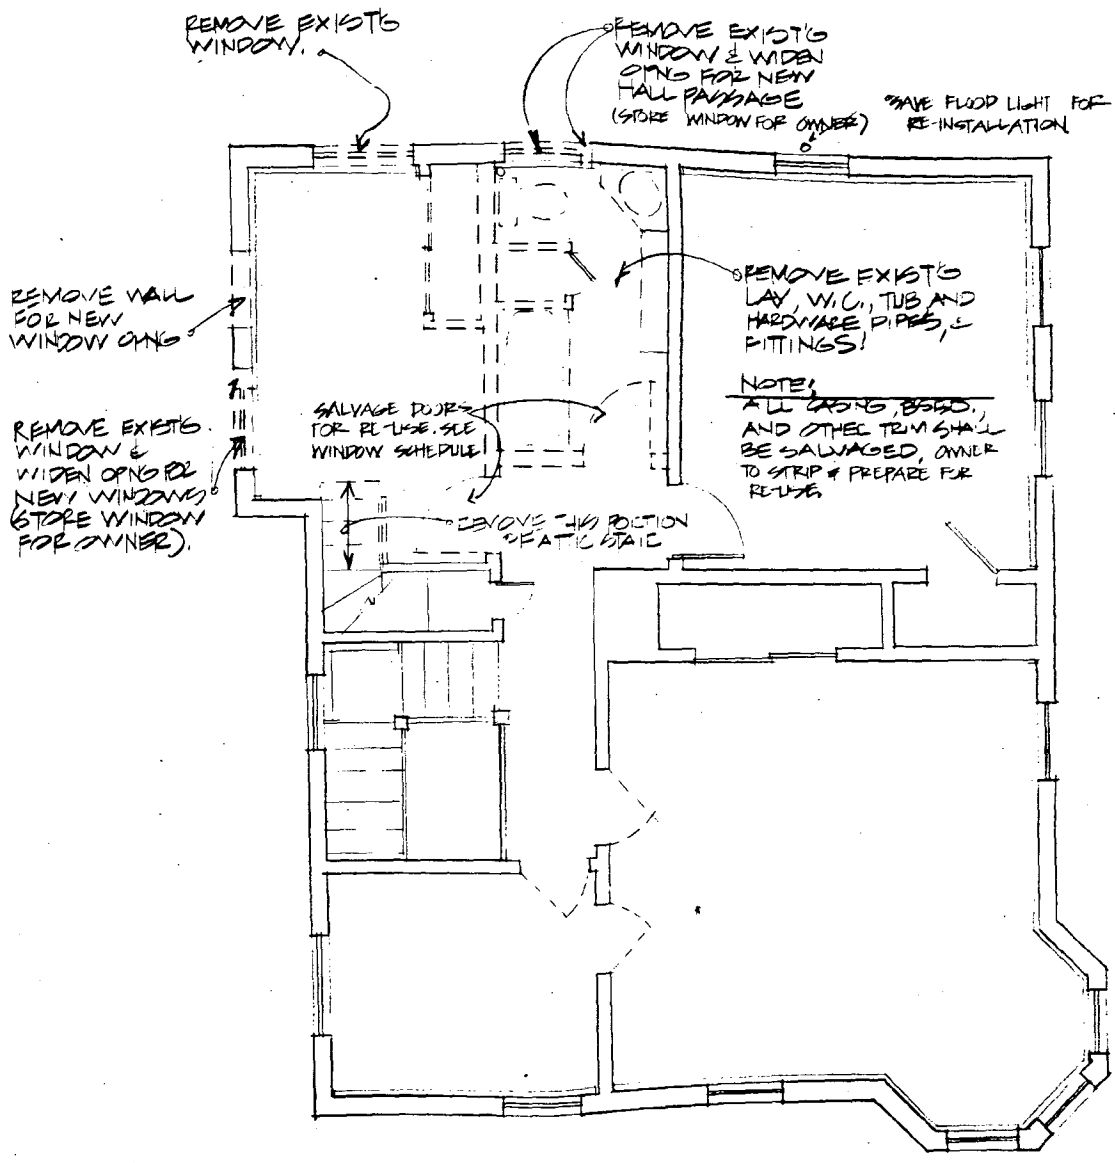 REMOVE EXIST'G
WINDOW.
REMOVE EXIST'G
WINDOW & WIDEN
OP'NG FOR NEW
HALL PASSAGE
(STORE WINDOW FOR OWNER)
*SAVE FLOOD LIGHT FOR
RE-INSTALLATION
REMOVE WALL
FOR NEW
WINDOW OP'NG
REMOVE EXIST'G
LAV, W.C., TUB AND
HARDWARE PIPES, &
FITTINGS!
NOTE:
ALL CASING, BSBD.,
AND OTHER TRIM SHALL
BE SALVAGED, OWNER
TO STRIP & PREPARE FOR
RE-USE.
SALVAGE DOORS
FOR RE-USE. SEE
WINDOW SCHEDULE
REMOVE EXIST'G
WINDOW &
WIDEN OP'NG FOR
NEW WINDOWS
(STORE WINDOW
FOR OWNER).
REMOVE THIS PORTION
OF ATTIC STAIR